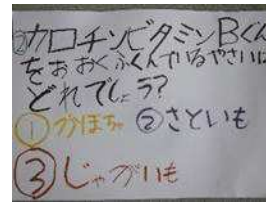 ②カロチンビタミンBくん
をおおくふくんでいるやさいは
どれでしょう?
①かぼちゃ ②さといも
③じゃがいも